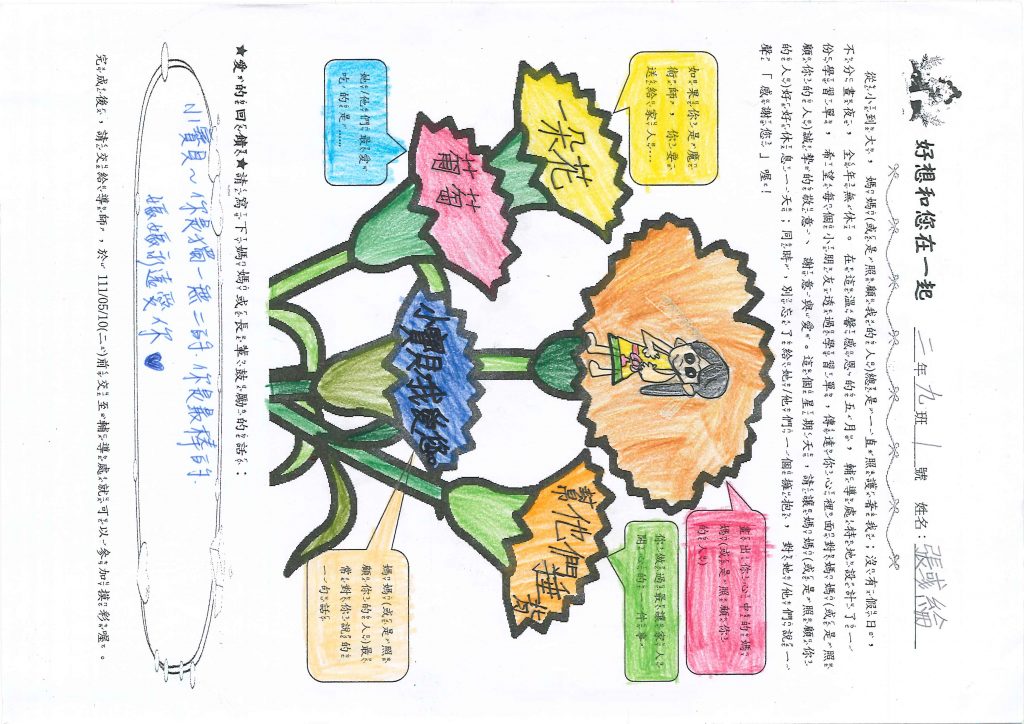 好想和您在一起 二年九班 1 號 姓名：張彧綸
從小到大，媽媽(或是照顧我的人)總是一直照護著我；沒有假日，
不分晝夜，全年無休。在這溫馨感恩的五月，輔導處特地設計了一
份學習單，希望每個小朋友透過學習單，傳達你心裡面對媽媽(或是照
顧你的人)誠摯的敬意、謝意與愛。這個星期天，請讓媽媽(或是照顧你
的人)好好休息一天；同時，別忘了給她/他們一個擁抱，對她/他們說一
聲「感謝您」喔！
如果你是魔
術師，你要
送給家人…
一朵花
畫出你心中的媽
媽(或是照顧你
的人)
你做過最讓家人
開心的一件事
幫他們捶背
她/他們最愛
吃的是……
小寶貝我愛您
媽媽(或是照
顧你的人)最
常對你說的
一句話
★愛的回饋★請寫下媽媽或長輩鼓勵的話：
小寶貝～你是獨一無二的. 你是最棒的.
媽媽永遠愛你♥
完成後，請交給導師，於 111/05/10(二)前交至輔導處就可以參加摸彩喔。